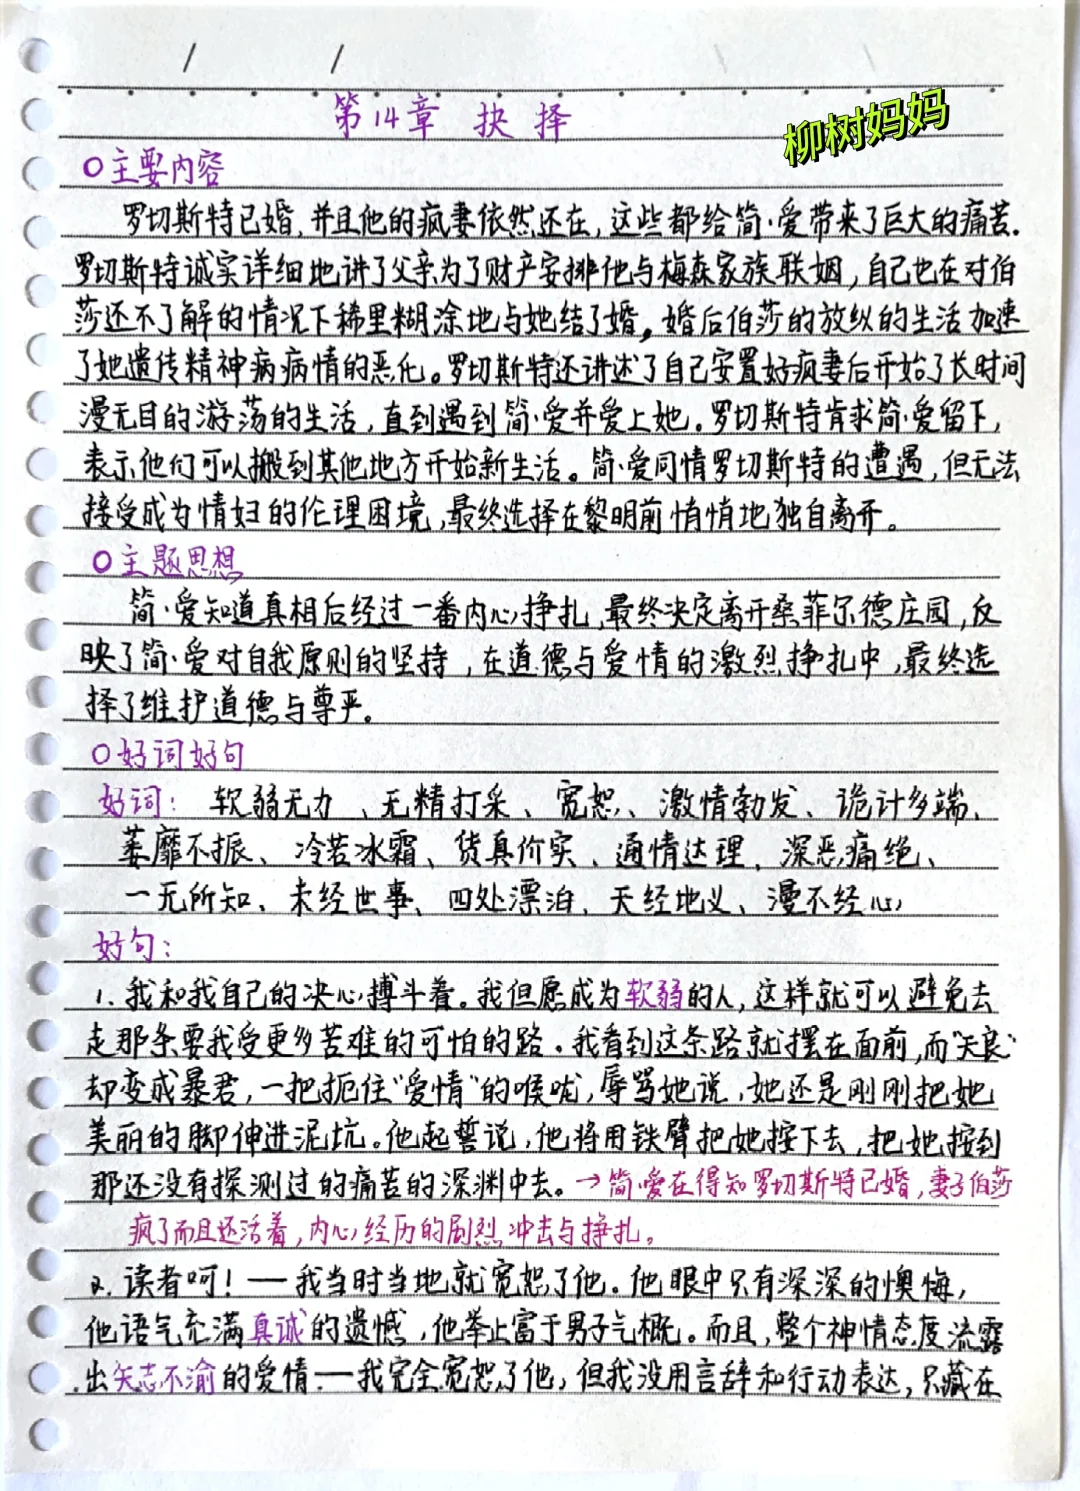 第14章 抉择
柳树妈妈
○主要内容
罗切斯特已婚,并且他的疯妻依然还在,这些都给简·爱带来了巨大的痛苦.
罗切斯特诚实详细地讲了父亲为了财产安排他与梅森家族联姻,自己也在对伯
莎还不了解的情况下稀里糊涂地与她结了婚,婚后伯莎的放纵的生活加速
了她遗传精神病病情的恶化。罗切斯特还讲述了自己安置好疯妻后开始了长时间
漫无目的游荡的生活,直到遇到简·爱并爱上她。罗切斯特肯求简·爱留下,
表示他们可以搬到其他地方开始新生活。简·爱同情罗切斯特的遭遇,但无法
接受成为情妇的伦理困境,最终选择在黎明前悄悄地独自离开。
○主题思想
简·爱知道真相后经过一番内心挣扎,最终决定离开桑菲尔德庄园,反
映了简·爱对自我原则的坚持,在道德与爱情的激烈挣扎中,最终选
择了维护道德与尊严。
○好词好句
好词: 软弱无力、无精打采、宽恕、激情勃发、诡计多端、
萎靡不振、冷若冰霜、货真价实、通情达理、深恶痛绝、
一无所知、未经世事、四处漂泊、天经地义、漫不经心
好句:
1.我和我自己的决心搏斗着。我但愿成为软弱的人,这样就可以避免去
走那条要我受更多苦难的可怕的路。我看到这条路就摆在面前,而“矢良”
却变成暴君,一把扼住“爱情”的喉咙,辱骂她说,她还是刚刚把她
美丽的脚伸进泥坑。他起誓说,他将用铁臂把她按下去,把她按到
那还没有探测过的痛苦的深渊中去。→简·爱在得知罗切斯特已婚,妻子伯莎
疯了而且还活着,内心经历的剧烈冲击与挣扎。
2.读者呵!—我当时当地就宽恕了他。他眼中只有深深的懊悔,
他语气充满真诚的遗憾,他举止富于男子气概。而且,整个神情态度流露
出矢志不渝的爱情—我完全宽恕了他,但我没用言辞和行动表达,只藏在